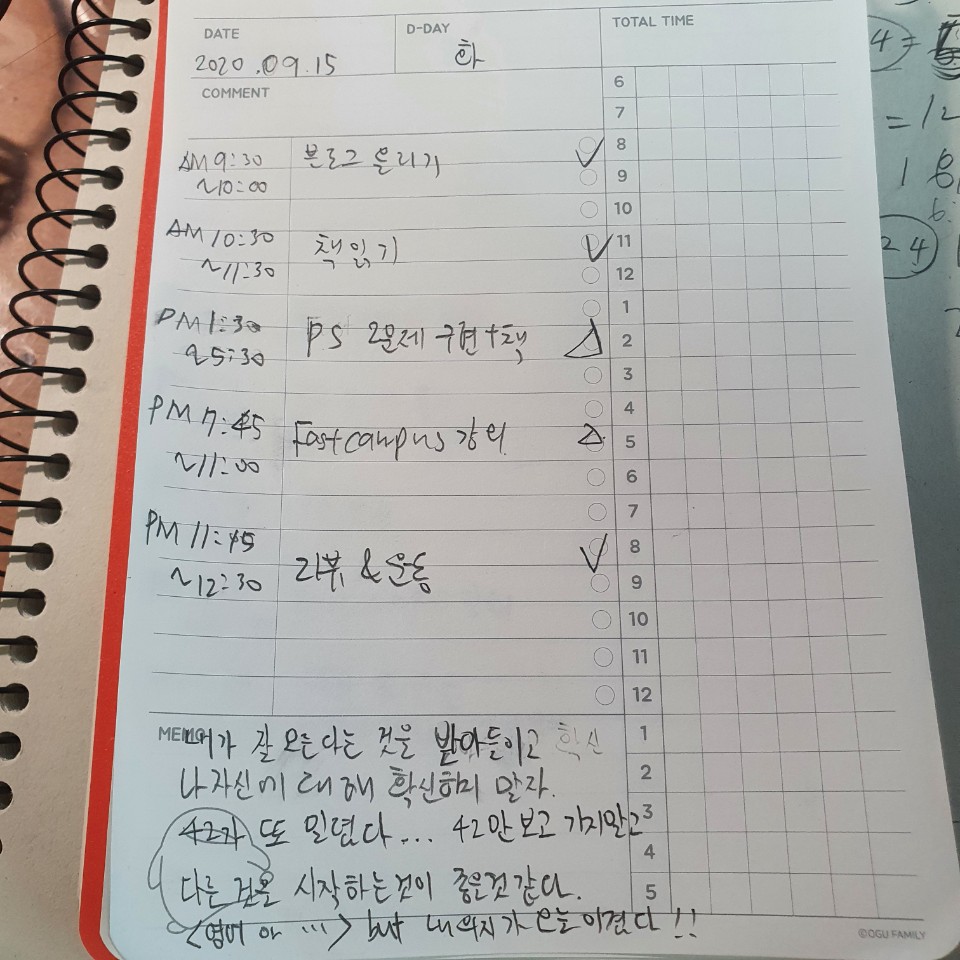 DATE
2020.09.15
D-DAY
화
TOTAL TIME
COMMENT
AM 9:30 블로그 올리기
~10:00
AM 10:30 책읽기
~11:30
PM 1:30 PS 2문제 구현+책
~5:30
PM 7:45 Fastcampus 강의
~11:00
PM 11:45 리뷰 & 운동
~12:30
6
7
8
9
10
11
12
1
2
3
4
5
6
7
8
9
10
11
12
1
2
3
4
5
MEMO
내가 잘 모른다는 것을 받아들이고 확신
나 자신에 대해 확신하지 말자.
42가 또 밀렸다... 42만 보고 가지말고
다른 것을 시작하는것이 좋은것 같다.
<영어 아 ...> but 내 의지가 오늘 이겼다!!
©OGU FAMILY
4=
=12
1
6
24